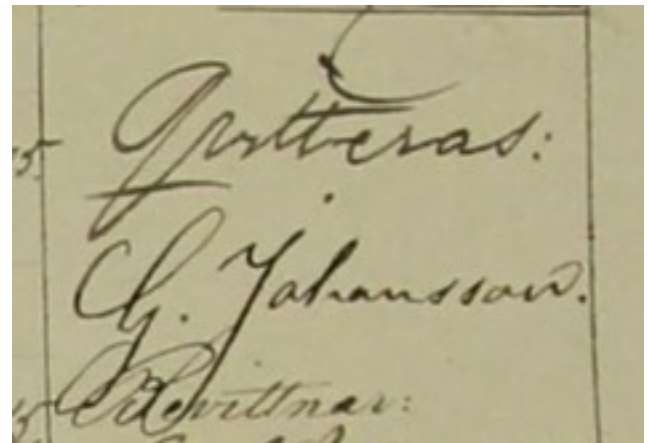 15. Qvitteras:
G. Johansson.
15 Revittnar: